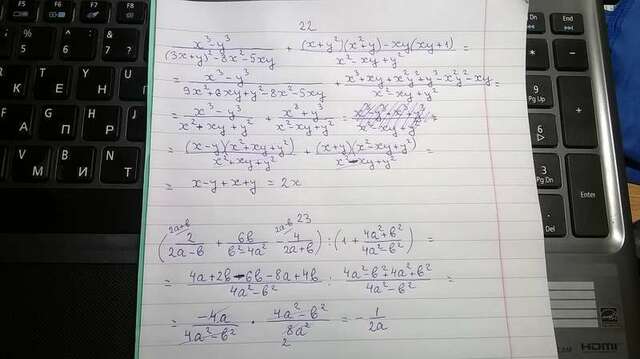 22
(x³-y³)/((3x+y)²-8x²-5xy) + ((x+y²)(x²+y)-xy(xy+1))/(x²-xy+y²) =
= (x³-y³)/(9x²+6xy+y²-8x²-5xy) + (x³+xy+x²y²+y³-x²y²-xy)/(x²-xy+y²) =
= (x³-y³)/(x²+xy+y²) + (x³+y³)/(x²-xy+y²) =
= ((x-y)(x²+xy+y²))/(x²+xy+y²) + ((x+y)(x²-xy+y²))/(x²-xy+y²) =
= x-y+x+y = 2x
23
(2/(2a-b) + 6b/(b²-4a²) - 4/(2a+b)) : (1 + (4a²+b²)/(4a²-b²)) =
= (4a+2b-6b-8a+4b)/(4a²-b²) : (4a²-b²+4a²+b²)/(4a²-b²) =
= (-4a)/(4a²-b²) · (4a²-b²)/(8a²) = -1/(2a)
Dn
End
9
Pg Up
6
3
Pg Dn
HDMI